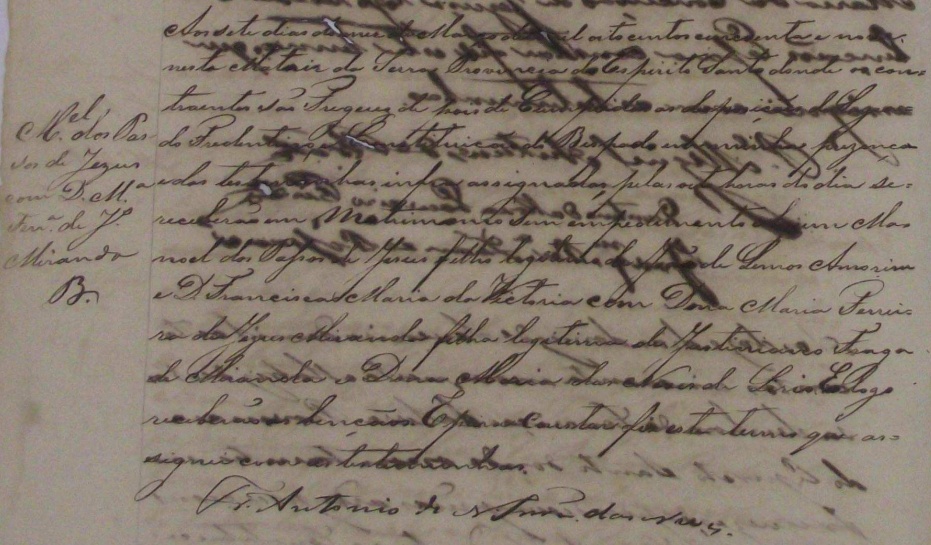 M.el
M. dos Pas-
sos de Jezus
com D. M.a
Ferr.a de J.
Miranda
B.
Aos sete dias do mes de Março de mil oitocentos cincoenta e nove
nesta Matriz da Serra Provincia do Espirito Santo donde os con-
traentes são Freguezes depois de as desposição do Sag=
do Tredentino, e Constituição do Bispado em minha prezença
e das testemunhas infra assignadas pelas oito horas do dia se=
receberão em Matrimonio sem empedimento algum Ma
noel dos Passos de Jesus filho legitimo de de Lemos Amorim
e D Francisca Maria da Victoria com Dona Maria Ferrei=
ra de Jezus Miranda filha legitima de Justiniano Fraga
de Miranda e Dona Maria das Neves de E logo
receberão as bençãos E para constar fis este termo que as=
signei com as testemunhas.
Fr. Antonio de N Snra. das Neves.